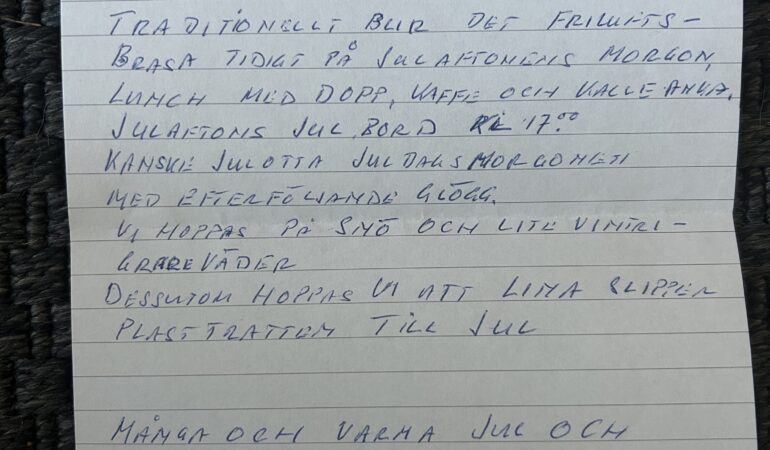 TRADITIONELLT BLIR DET FRILUFTS-
BRASA TIDIGT PÅ JULAFTONENS MORGON,
LUNCH MED DOPP, KAFFE OCH KALLE ANKA.
JULAFTONS JUL BORD KL 17.00
KANSKE JULOTTA JULDAGSMORGONEN
MED EFTERFÖLJANDE GLÖGG.
VI HOPPAS PÅ SNÖ OCH LITE VINTRI-
GRARE VÄDER
DESSUTOM HOPPAS VI ATT LINA SLIPPER
PLASTTRATTEN TILL JUL
MÅNGA OCH VARMA JUL OCH